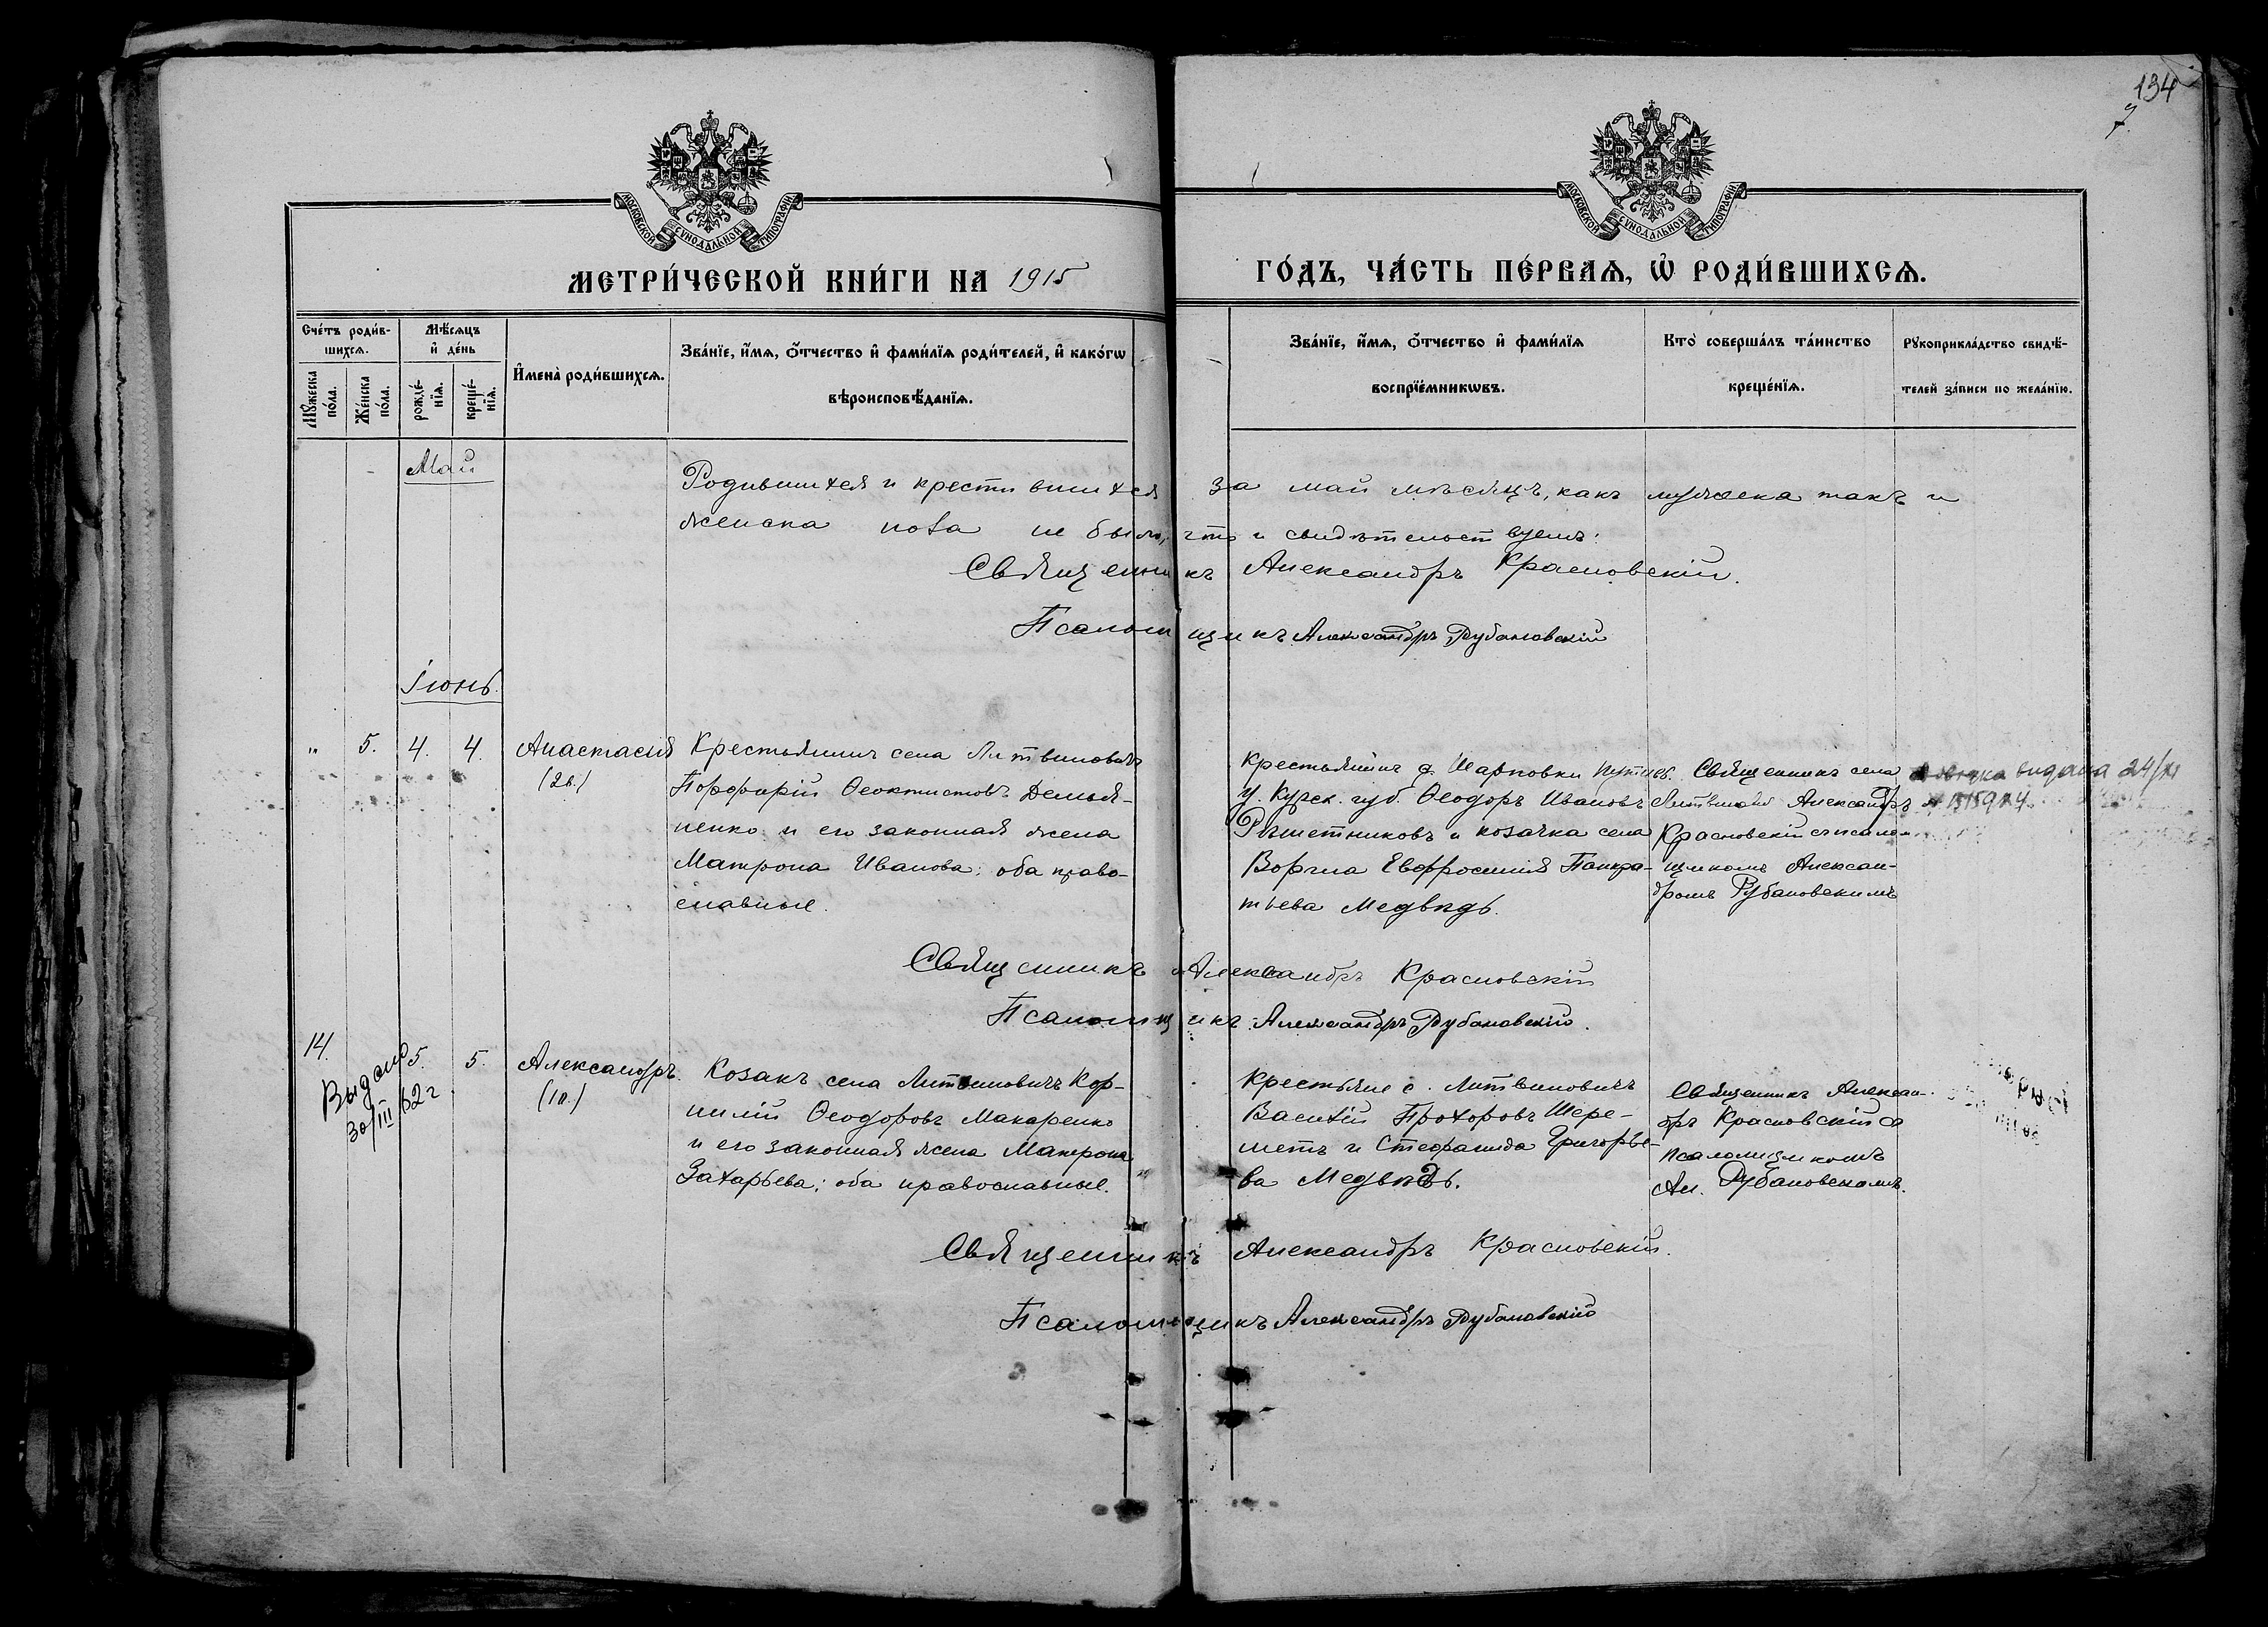 134
7.
МОСКОВСКОЙ СѴНОДАЛЬНОЙ ТИПОГРАФІИ
МОСКОВСКОЙ СѴНОДАЛЬНОЙ ТИПОГРАФІИ
МЕТРИ́ЧЕСКОЙ КНИ́ГИ НА 1915
ГО́ДЪ, ЧА́СТЬ ПЕ́РВАѦ, Ѡ҆ РОДИ́ВШИХСѦ.
Сче́тъ роди́в-
шихсѧ.
Мꙋ́жеска по́ла.
Же́нска по́ла.
Мѣ́сѧцъ
и҆ де́нь
рожде́-нїѧ.
креще́-нїѧ.
И҆мена̀ роди́вшихсѧ.
Зва́нїе, и҆́мѧ, ѻ҆́тчество и҆ фами́лїѧ роди́телей, и҆ како́гѡ
вѣроисповѣ́данїѧ.
Зва́нїе, и҆́мѧ, ѻ҆́тчество и҆ фами́лїѧ
воспрїе́мникѡвъ.
Кто̀ соверша́лъ та́инство
креще́нїѧ.
Рꙋкоприкла́дство свидѣ́-
телей за́писи по жела́нїю.
Май
Родившихся и крестившихся за май мѣсяцъ, какъ мужеска такъ и
женска пола не было, что и свидѣтельствуемъ:
Священникъ Александръ Красновскій.
Псаломщикъ Александръ Рубановскій
Іюнь.
" 5. 4. 4.
Анастасія
(2я.)
Крестьянинъ села Литвиновичъ
Порфирій Ѳеоктистовъ Демья-
ненко и его законная жена
Матрона Иванова; оба право-
славные.
Крестьянинъ д. Шарповки Путив.
у. Курск. губ. Ѳеодоръ Ивановъ
Рѣшетниковъ и козачка села
Воргла Евфросинія Панкра-
тьева Медвѣдь.
Священникъ села
Литвиновичъ Александръ
Красновскій съ псалом-
щикомъ Алексан-
дромъ Рубановскимъ
видана 24/XI
Священникъ Александръ Красновскій
Псаломщикъ Александръ Рубановскій.
14. 5. 5.
Выдано
30/III 62 г
Александръ.
(1й.)
Козакъ села Литвиновичъ Кор-
нилій Ѳеодоровъ Макаренко
и его законная жена Матрона
Захарьева; оба православные.
Крестьяне с. Литвиновичъ
Василій Прохоровъ Шере-
метъ и Стефанида Григорье-
ва Медвѣдь.
Священникъ Алексан-
дръ Красновскій съ
псаломщикомъ
Ал. Рубановскимъ.
Священникъ Александръ Красновскій.
Псаломщикъ Александръ Рубановскій